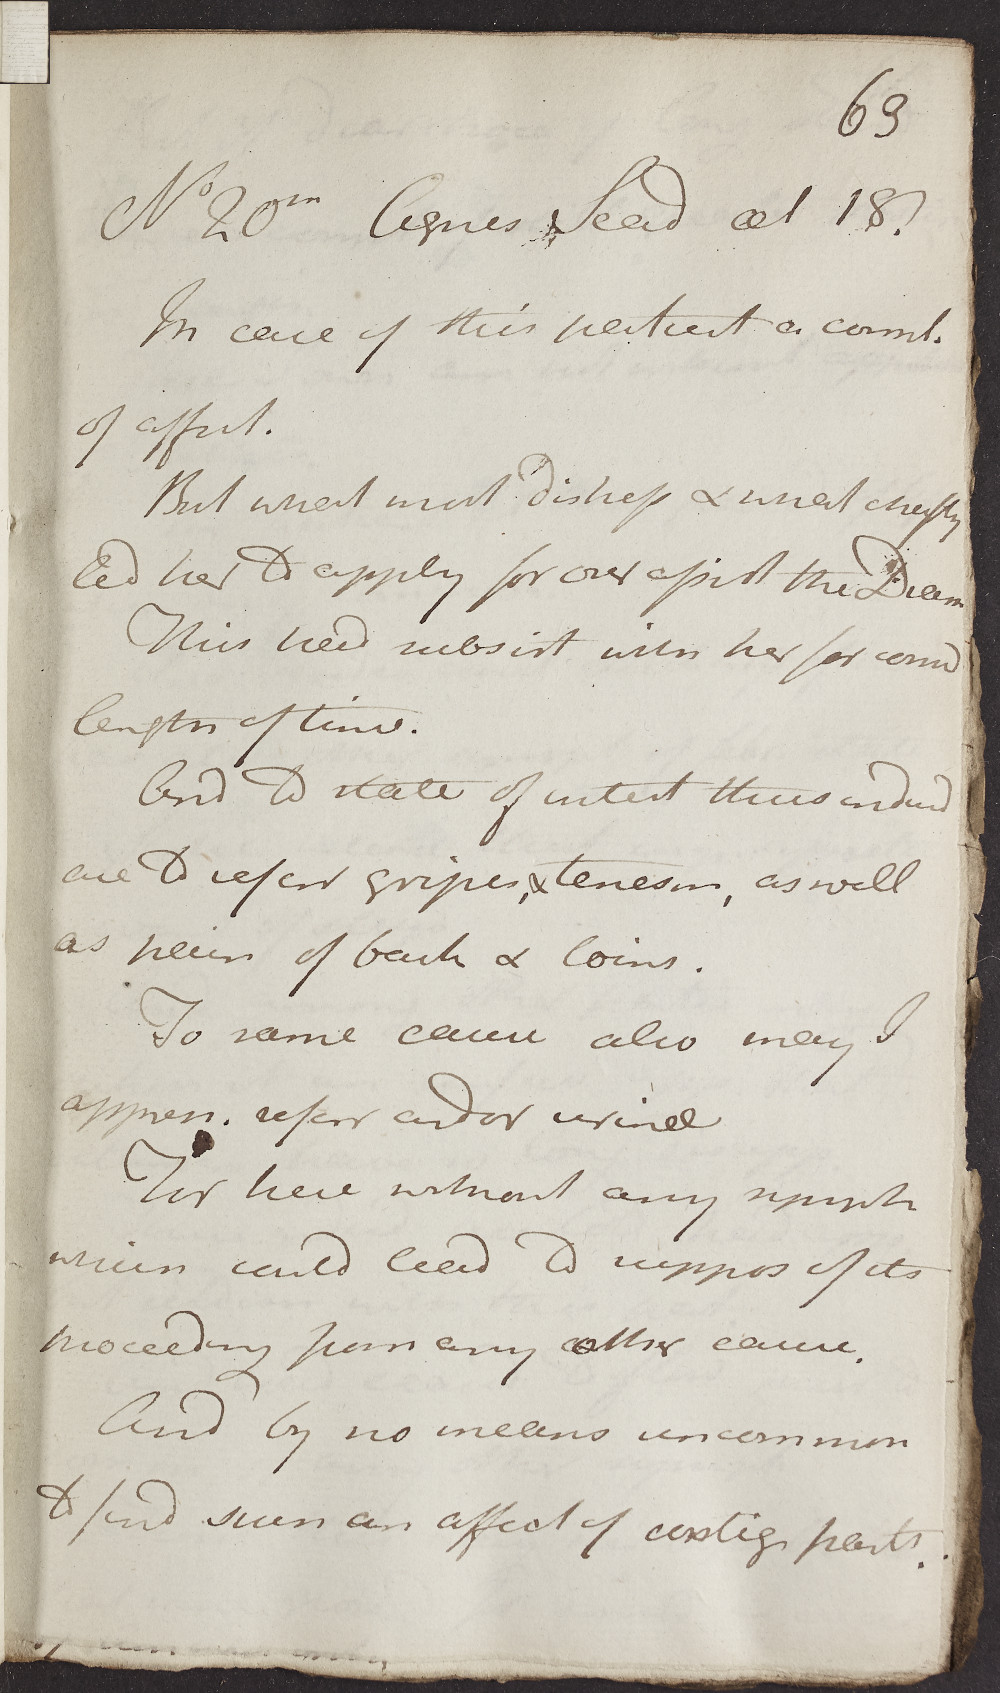 69
No 20m Agnes Sead æt 18?
In case of this patient a comb.
of affect.
But what most distress & what cheifly
led her to apply for our assist the Diarr
This had subsist with her for cons
length of time.
And to state of intest thus induc
are to refer gripes, & tenesm, as well
as pain of back & loins.
To same cause also may I
appreh. refer ardor urinæ
For here without any sympt
which could lead to suppos of its
proceeding from any other cause.
And by no means uncommon
to find such an affect of contig parts.